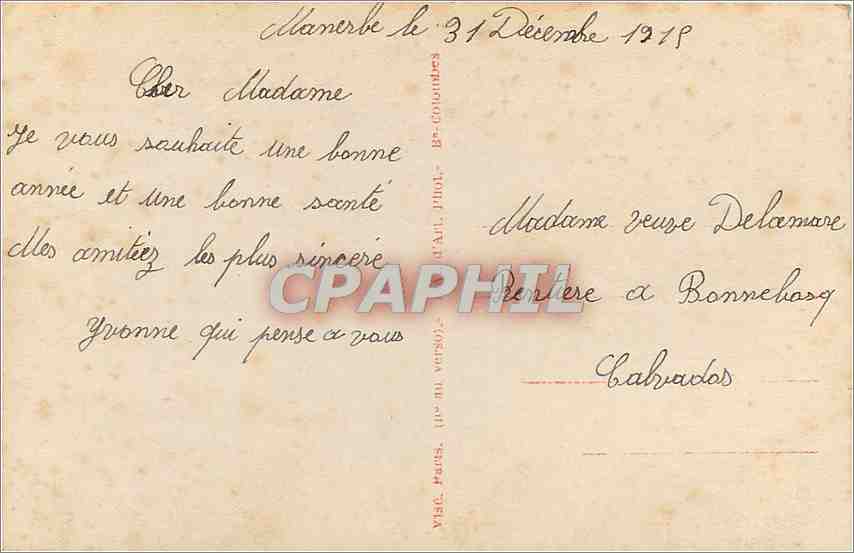 Manerbe le 31 Décembre 1915
Cher Madame
Je vous souhaite une bonne
année et une bonne santé
Mes amitiez les plus sinceré
Yvonne qui pense a vous
Madame veuve Delamare
Rentiere a Bonnebosq
Calvados
Visé. Paris. (No au verso).- d'Art. Phot.- Bs-Colombes
CPAPHIL